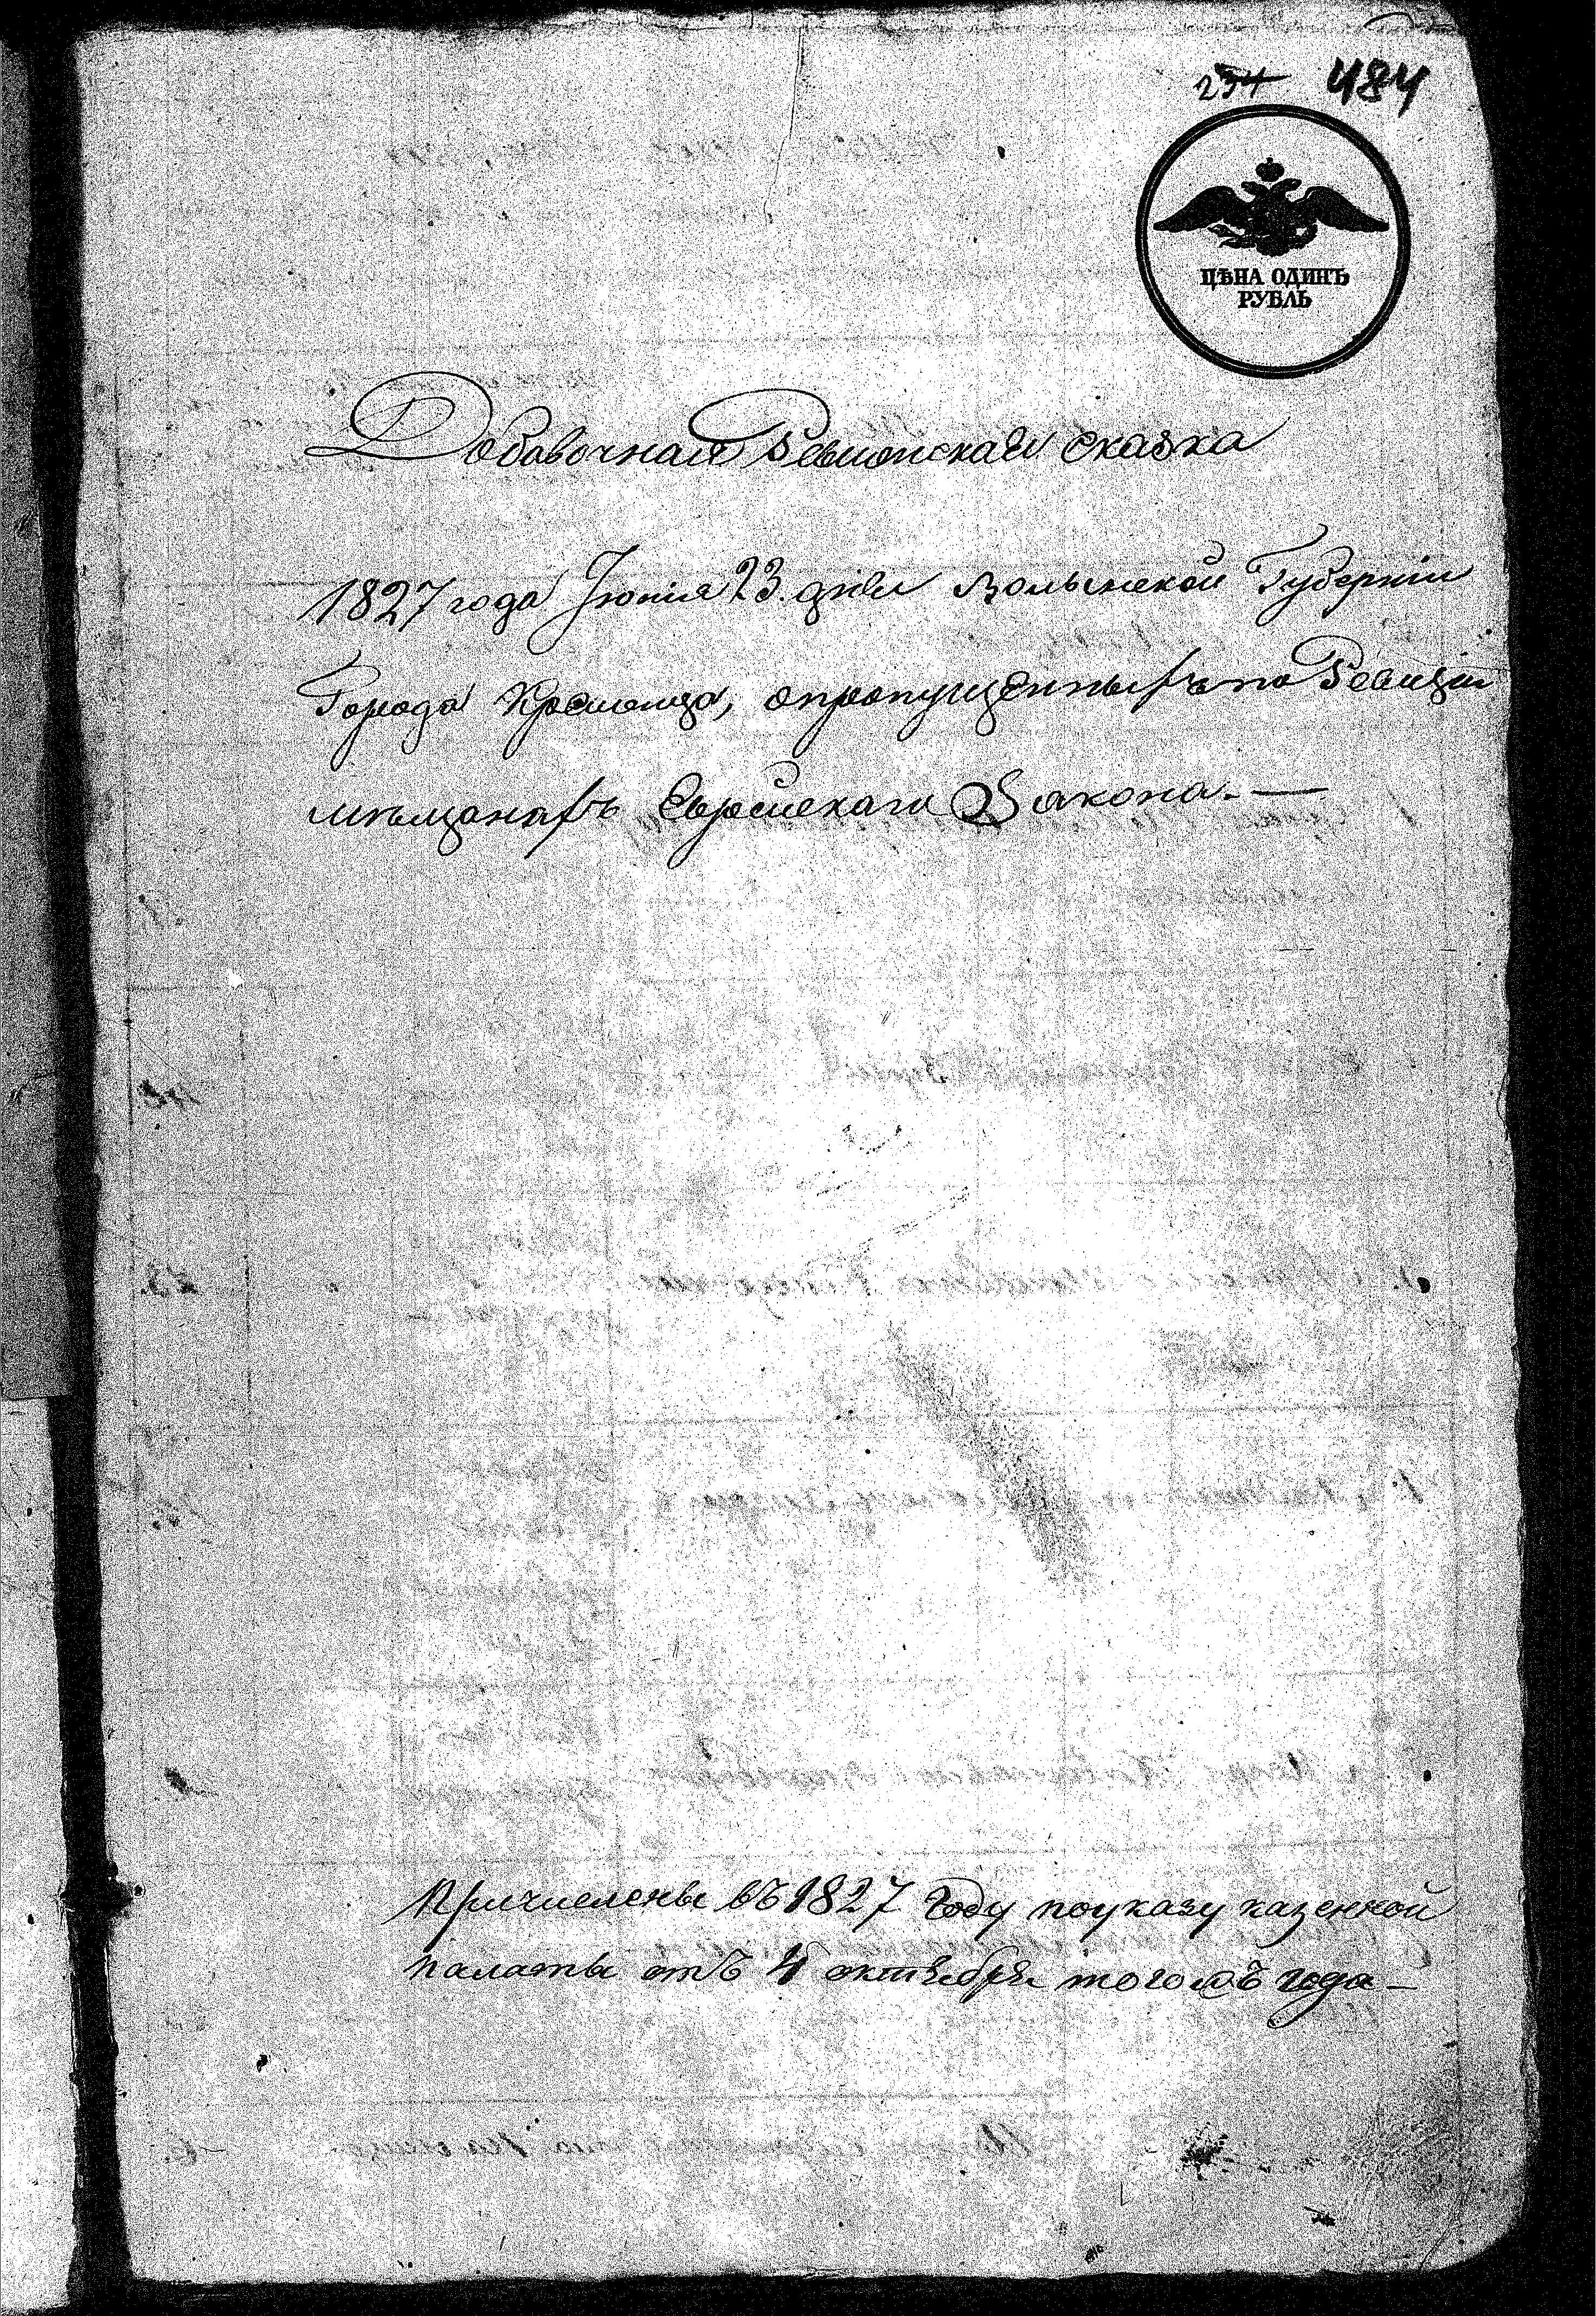 234 484
ЦѢНА ОДИНЪ
РУБЛЬ
Добавочная Ревизская сказка
1827 года Іюня 23. дня Волынской Губерніи
Города Кременца, опропущенныхъ по Ревизіи
мѣщанахъ Еврейскаго Закона. —
Причислены въ 1827 году поуказу казенной
палаты отъ 4 октября тогожъ года —